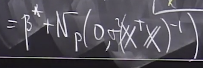 = β* + N_p(0, σ²(XᵀX)⁻¹)